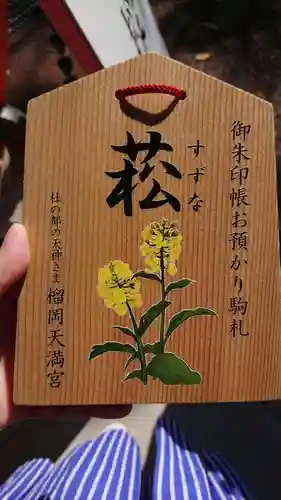 御朱印帳お預かり駒札
すずな
菘
杜の都の天神さま
榴岡天満宮